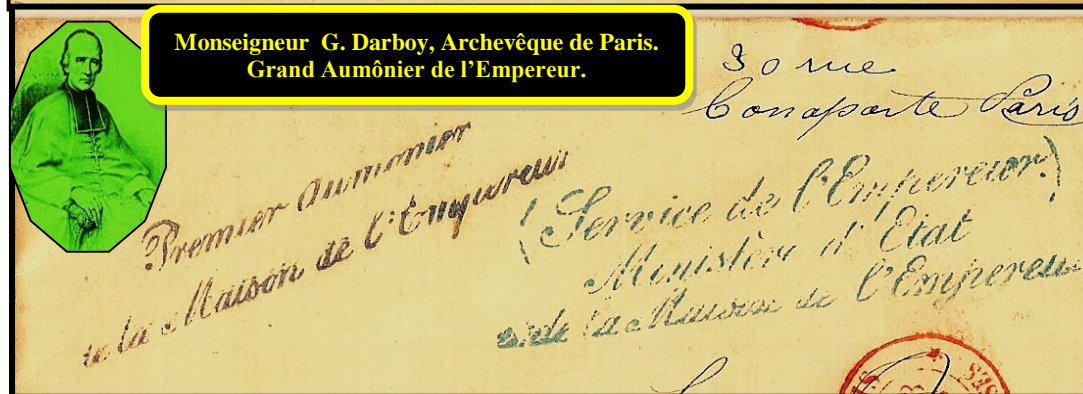 Monseigneur G. Darboy, Archevêque de Paris.
Grand Aumônier de l’Empereur.
30 rue
Bonaparte Paris
Premier Aumonier
de la Maison de l'Empereur
(Service de l'Empereur.)
Ministère d'Etat
et de la Maison de l'Empereur